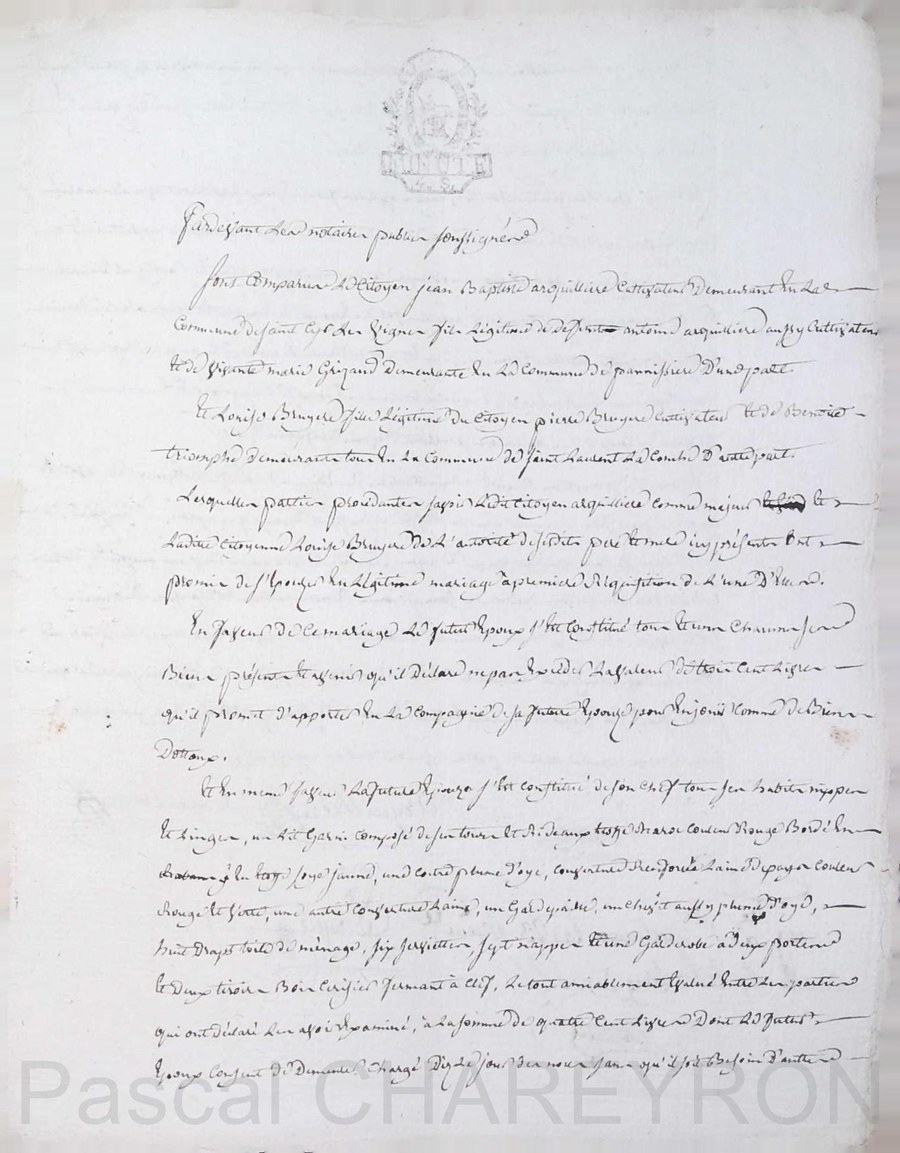 Pardevant Les notaires publics soussignés
sont Comparus Le Citoyen jean Baptiste arquilliere Cultivateur Demeurant En La
Commune de saint Cyr Les Vignes fils Légitime de deffunt antoine arquilliere aussy Cultivateur
Et de vivante marie Grizaud Demeurante En La Commune de pannissiere D'une part.
Et Louise Bruyere fille Légitime du Citoyen pierre Bruyere Cultivateur Et de Benoite
triomphe Demeurants tous En La Commune de saint Laurent La Combe D'autre part.
Lesquelles parties procedantes savoir Ledit Citoyen arquilliere Comme majeur Et
Laditte Citoyenne Louise Bruyere de L'autorité desesdits pere Et mere icy présents Ont
promis de s'Epouzer En Légitime mariage a premiere Réquisition de L'une D'Elles.
En faveur de Ce mariage Le futur Epoux s'est Constitué tous Et uns Chacuns ses
Biens présents Et avenir qu'il Déclare ne pas Exceder La valeur de trois Cent Livres
qu'il promet d'apporter En La Compagnie de sa future Epouze pour En jouir Comme de Biens
Dottaux.
Et En meme faveur La future Epouze s'est Constitué de son Chef tous ses habits nippes
Et Linges, un Lit Garni Composé de ses tours Et Rideaux Couleur Rouge Bordé En
En soye jaune, une Coitre plume d'oye, Couverture Laine de pays Couleur
Rouge Et verte, une autre Couverture Laine, un Gardepaille, un Chevet aussy plume d'oye,
huit Draps toile de ménage, six serviettes, sept nappes Et une Garderobe à Deux portes
Et Deux tiroirs Bois Cerisier fermant à Clef, Le tout amiablement Evalué Entre Les parties
qui ont déclaré Les avoir Examiné, à La somme de quatre Cent Livres Dont Le futur
Epoux Consent de Demeurer Chargé Dix Le jour des noces sans qu'il soit Besoin D'autre
Pascal CHAREYRON